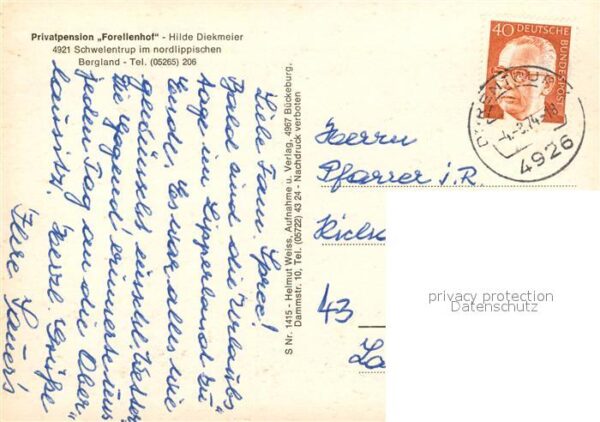 Privatpension „Forellenhof" - Hilde Diekmeier
4921 Schwelentrup im nordlippischen
Bergland - Tel. (05265) 206
Liebe Fam. Spree!
Bald sind die Urlaubs
tage im Lipperland zu
Ende. Es war alles wie
gewünscht, einschl. Wetter.
Die Gegend erinnerte uns
jeden Tag an die Ober
lausitz. Herzl. Grüße
Ihre Sauer's
S Nr. 1415 - Helmut Weiss, Aufnahme u. Verlag, 4967 Bückeburg,
Dammstr. 10, Tel. (05722) 43 24 - Nachdruck verboten
40 DEUTSCHE
BUNDESPOST
4926
Herrn
Pfarrer i.R.
43
privacy protection
Datenschutz